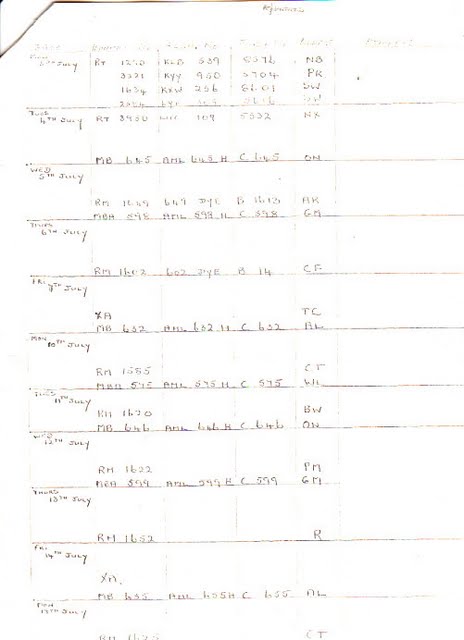 MON 3RD JULY RT 1250 KLB 539 5576 NB
3321 KYY 950 5704 PR
1634 KXW 256 5601 SW
TUES 4TH JULY RT 3930 109 5532 NX
MB 645 AML 645 H C 645 ON
WED 5TH JULY
RM 1649 649 DYE B 1613 AK
MBA 598 AML 598 H C 598 GM
THURS 6TH JULY
RM 1602 602 DYE B 14 CF
FRI 7TH JULY
XA TC
MB 632 AML 632 H C 632 AL
MON 10TH JULY
RM 1555 CT
MBA 575 AML 575 H C 575 WL
TUES 11TH JULY
RM 1620 BW
MB 646 AML 646 H C 646 ON
WED 12TH JULY
RM 1622 PM
MBA 599 AML 599 H C 599 GM
THURS 13TH JULY
RM 1652 R
FRI 14TH JULY
XA.
MB 655 AML 655 H C 655 AL
MON 17TH JULY
RM 1625 CT